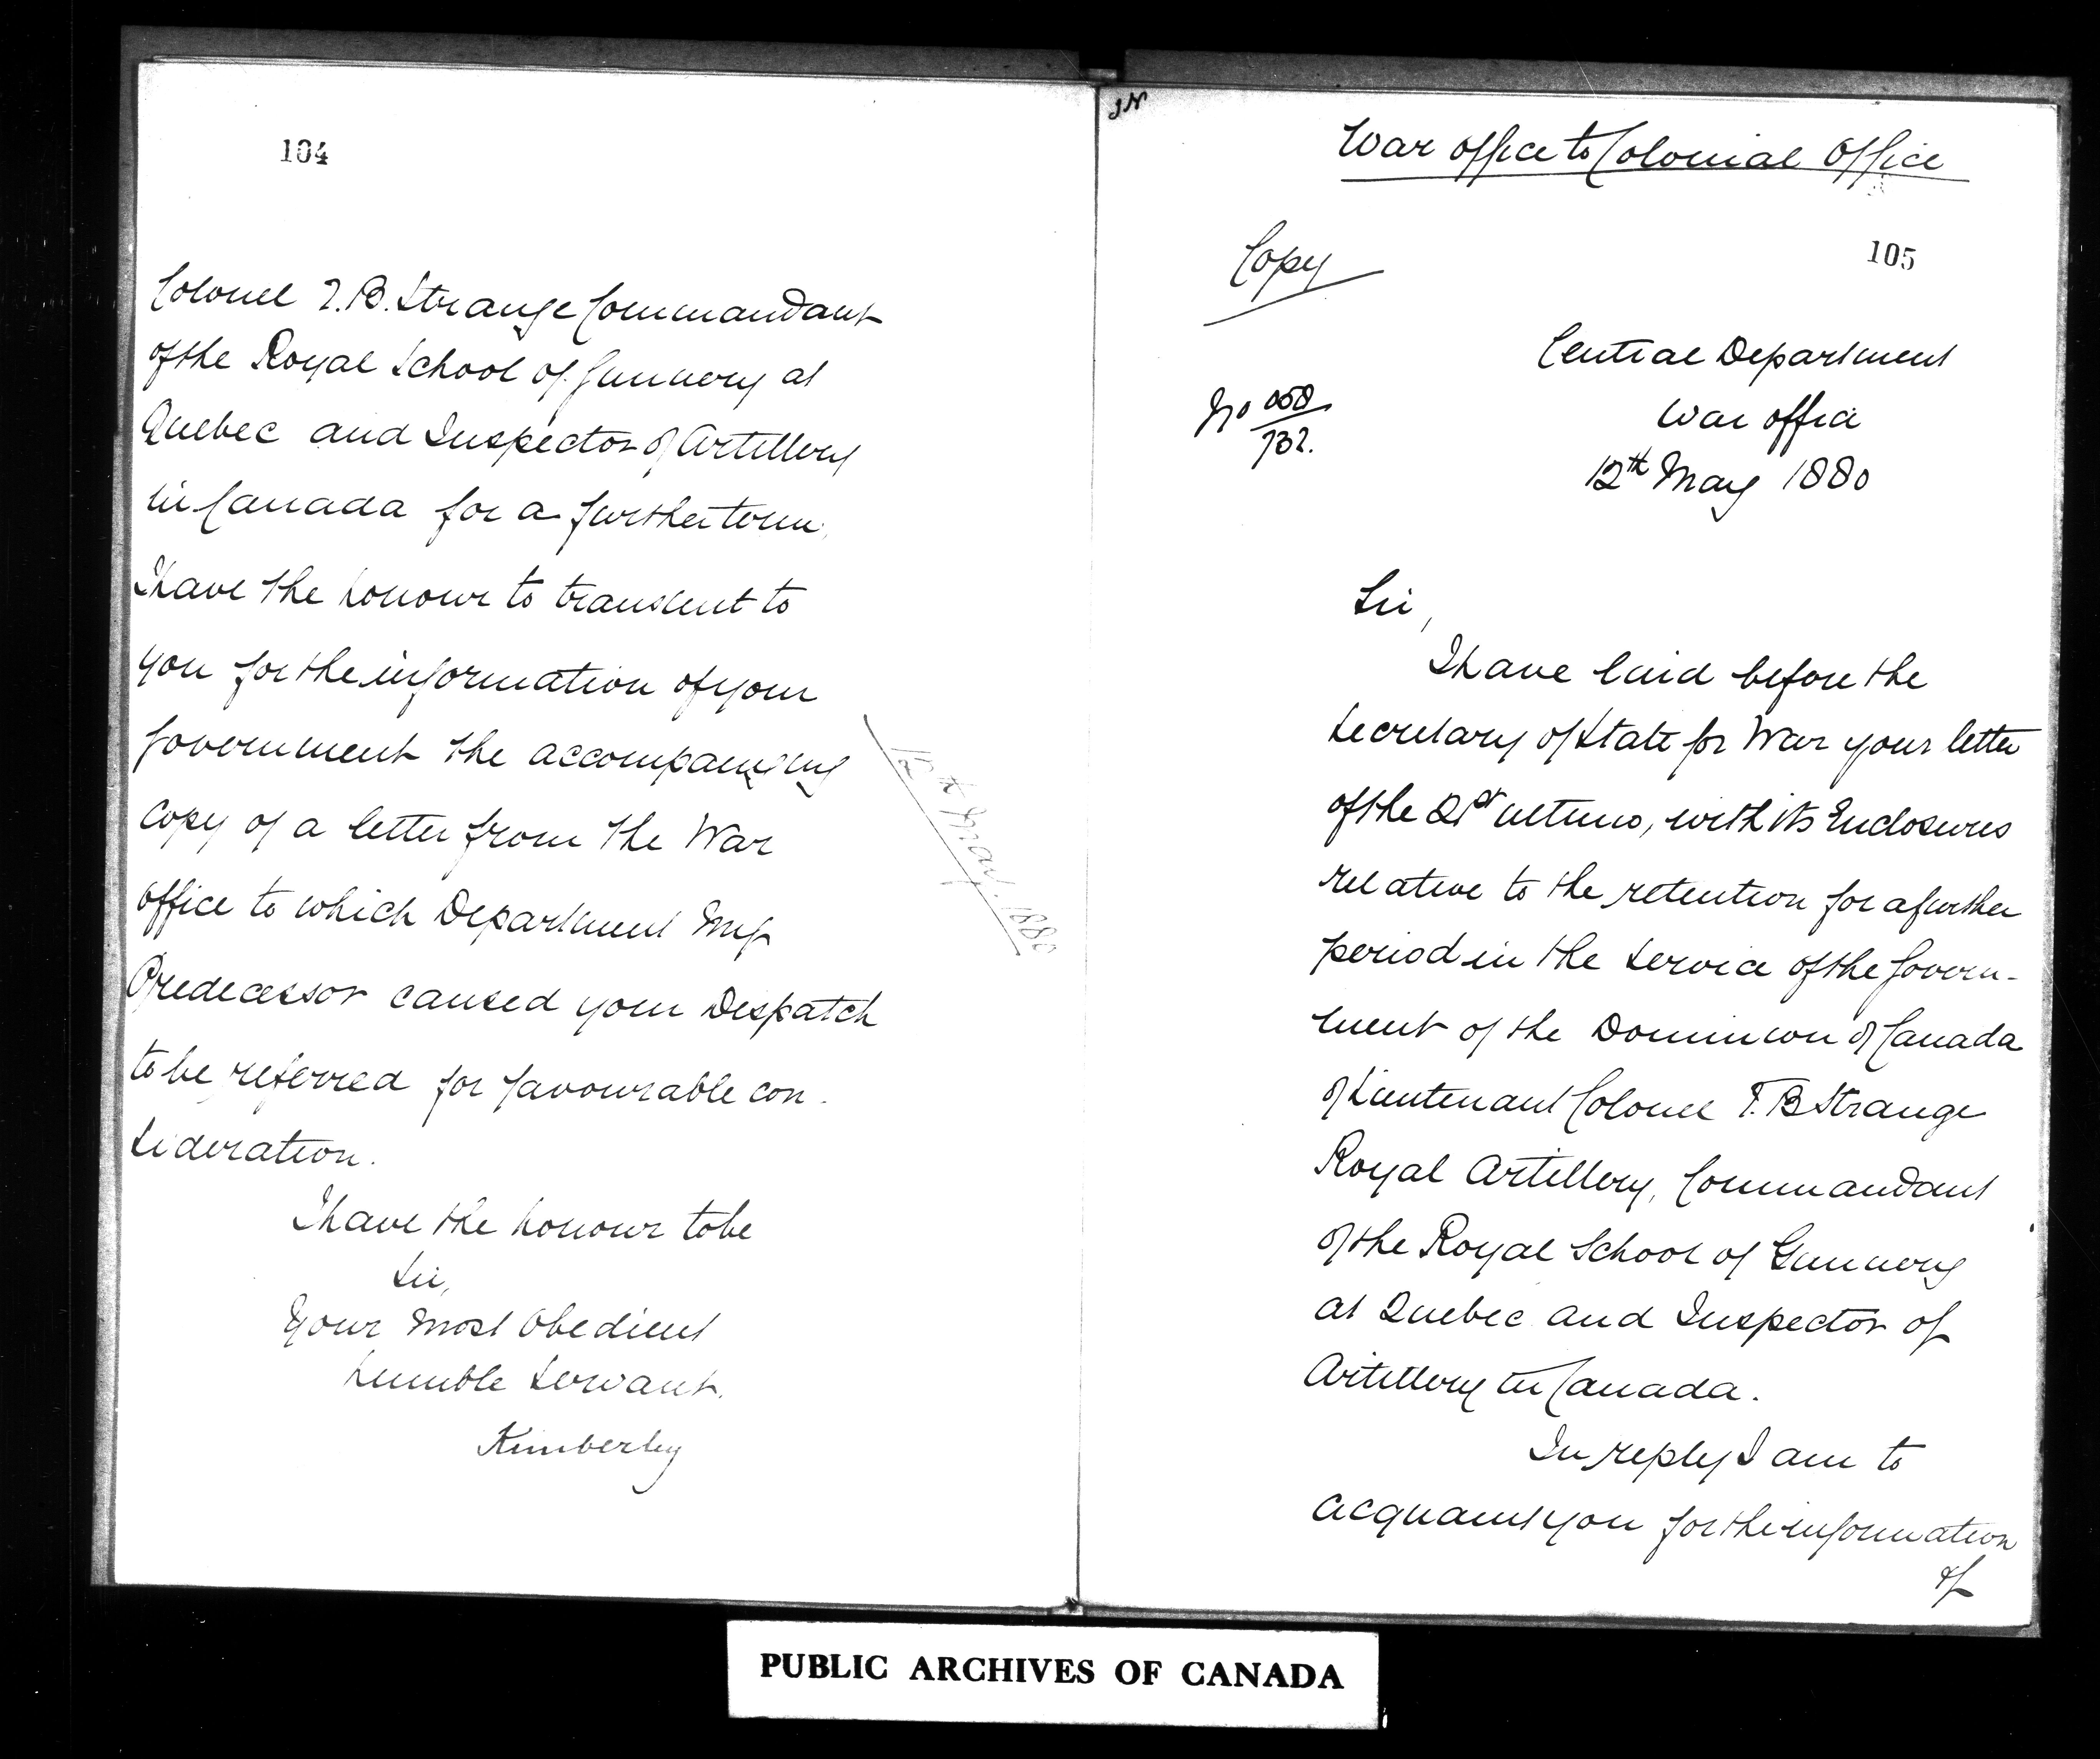 104
Colonel T. B. Strange Commandant
of the Royal School of Gunnery at
Quebec and Inspector of Artillery
in Canada for a further term,
I have the honour to transmit to
you for the information of your
Government the accompanying
copy of a letter from the War
Office to which Department my
Predecessor caused your Despatch
to be referred for favourable con-
sideration.
I have the honour to be
Sir,
Your most obedient
humble Servant.
Kimberley
12th May. 1880
War Office to Colonial Office
Copy
105
Central Department
War Office
12th May 1880
No 058/732.
Sir,
I have laid before the
Secretary of State for War your letter
of the 21st ultimo, with its Enclosures
relative to the retention for a further
period in the Service of the Govern-
ment of the Dominion of Canada
of Lieutenant Colonel T. B Strange
Royal Artillery, Commandant
of the Royal School of Gunnery
at Quebec and Inspector of
Artillery in Canada.
In reply I am to
acquaint you for the information
of
PUBLIC ARCHIVES OF CANADA